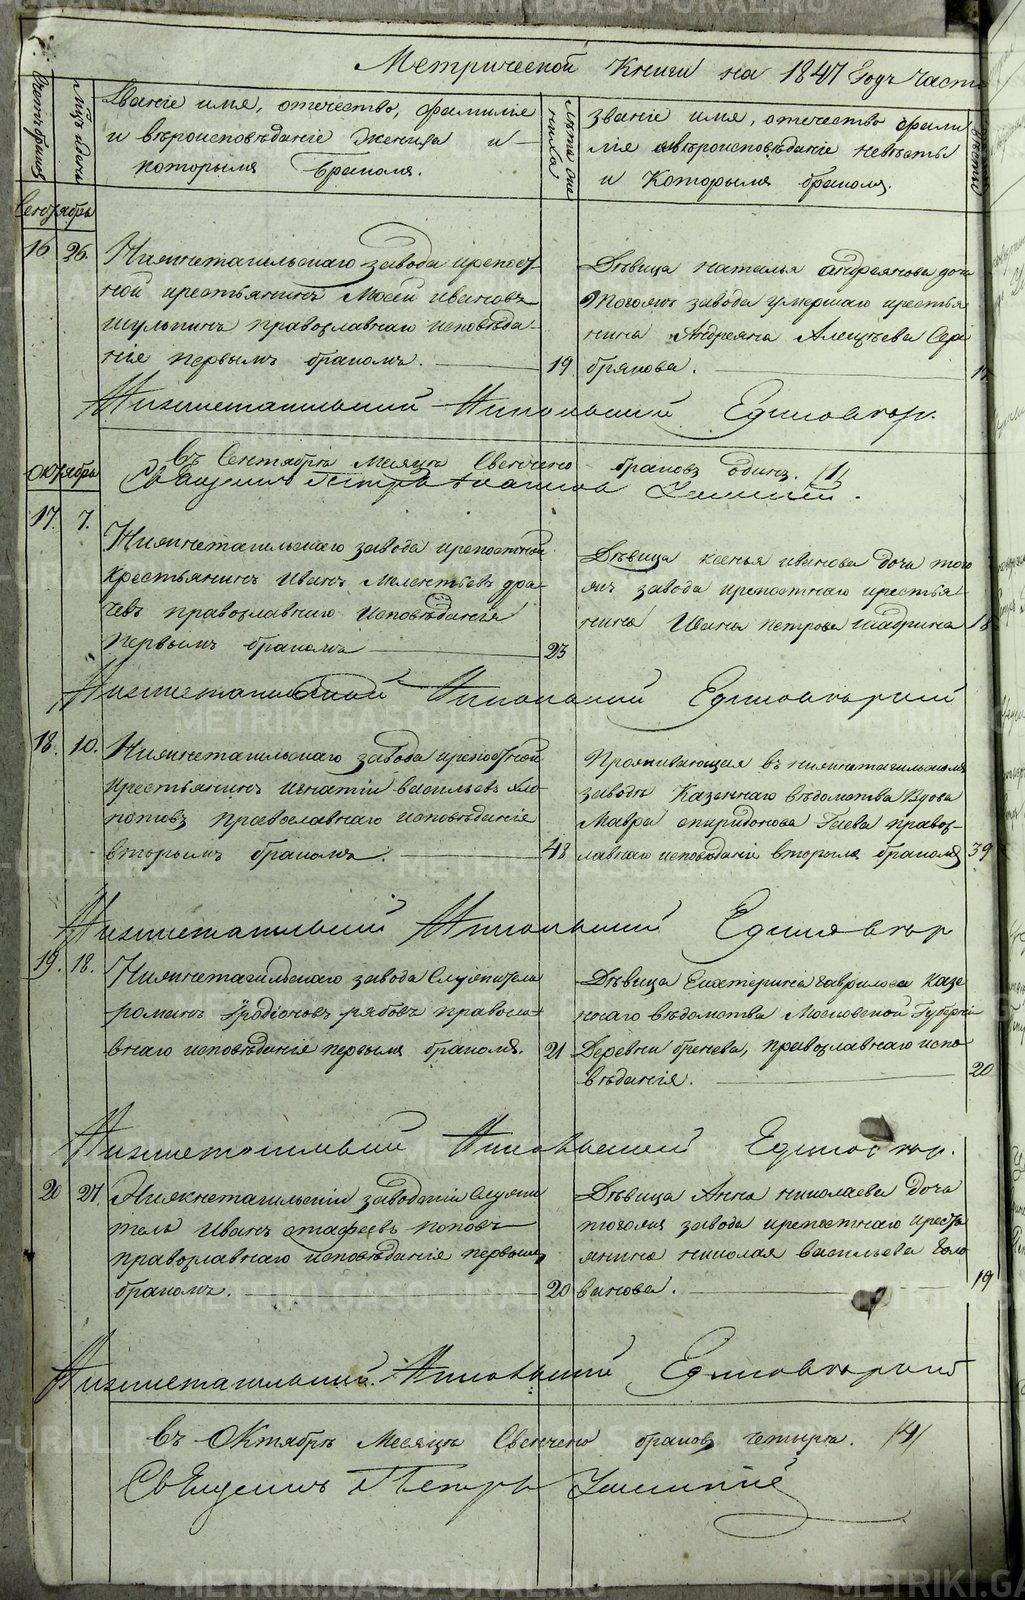 Метрической Книги на 1847 Годъ Часть
Званіе имя, отечество, фамиліе
и вѣроисповѣданіе Жениха и
которымъ Бракомъ.
званіе имя, отечество фами
ліе вѣроисповѣданіе невѣсты
и Которымъ бракомъ.
Сентябрь
16 26. Нижнетагильскаго завода крепост
ной крестьянинъ Мосей Ивановъ
Шульпинъ православнаго исповѣда
ніе первымъ бракомъ. 19
Дѣвица наталья Андреянова дочь
тогожъ завода умершаго крестья
нина Андреяна Алексѣева Сере
брякова.
Нижнетагильской Никольской Едіновѣр.
въ Сентябрѣ месяцѣ Свенчено браковъ одинъ. /1/
Священникъ Петръ
Октябрь
17. 7. Нижнетагильскаго завода крепостной
крестьянинъ Иванъ Мелентьевъ дра
чевъ православнаго Исповѣданія
первымъ бракомъ 23
Дѣвица ксенья иванова дочь того
жъ завода крепостнаго крестья
нина Ивана петрова шадрина 18
Нижнетагильской Никольской Едіновѣрской
18. 10. Нижнетагильскаго завода крепостной
крестьянинъ игнатіи васильевъ хло
потовъ православнаго исповѣданіе
вторымъ бракомъ. 48
Проживающая въ нижнетагильскомъ
заводѣ Казеннаго вѣдомства Вдова
Мавра спиридонова Гаева правос
лавнаго исповѣданіе вторымъ бракомъ 39
Нижнетагильской Никольской Едіновѣр
19. 18. Нижнетагильскаго завода Служитель
романъ Родіоновъ рябовъ правосла
внаго исповѣданіе первымъ бракомъ. 21
Дѣвица Екатерина гаврилова казе
ннаго вѣдомства Московской Губерніи
Деревни, православнаго испо
вѣданія. 20
Нижнетагильской Никольской Едіновѣр.
20 27. Нижнетагильскіи заводскіи служи
тель Иванъ стафеевъ поповъ
православнаго исповѣданіе первымъ
бракомъ. 20
Дѣвица Анна николаева дочь
тогожъ завода крепостнаго кресть
янина николая васильева голо
ванова. 19
Нижнетагильской Никольской Едіновѣрской
въ Октябрѣ Месяцѣ Свенчено браковъ четыре. /4/
Священникъ Петръ
METRIKI.GASO-URAL.RU